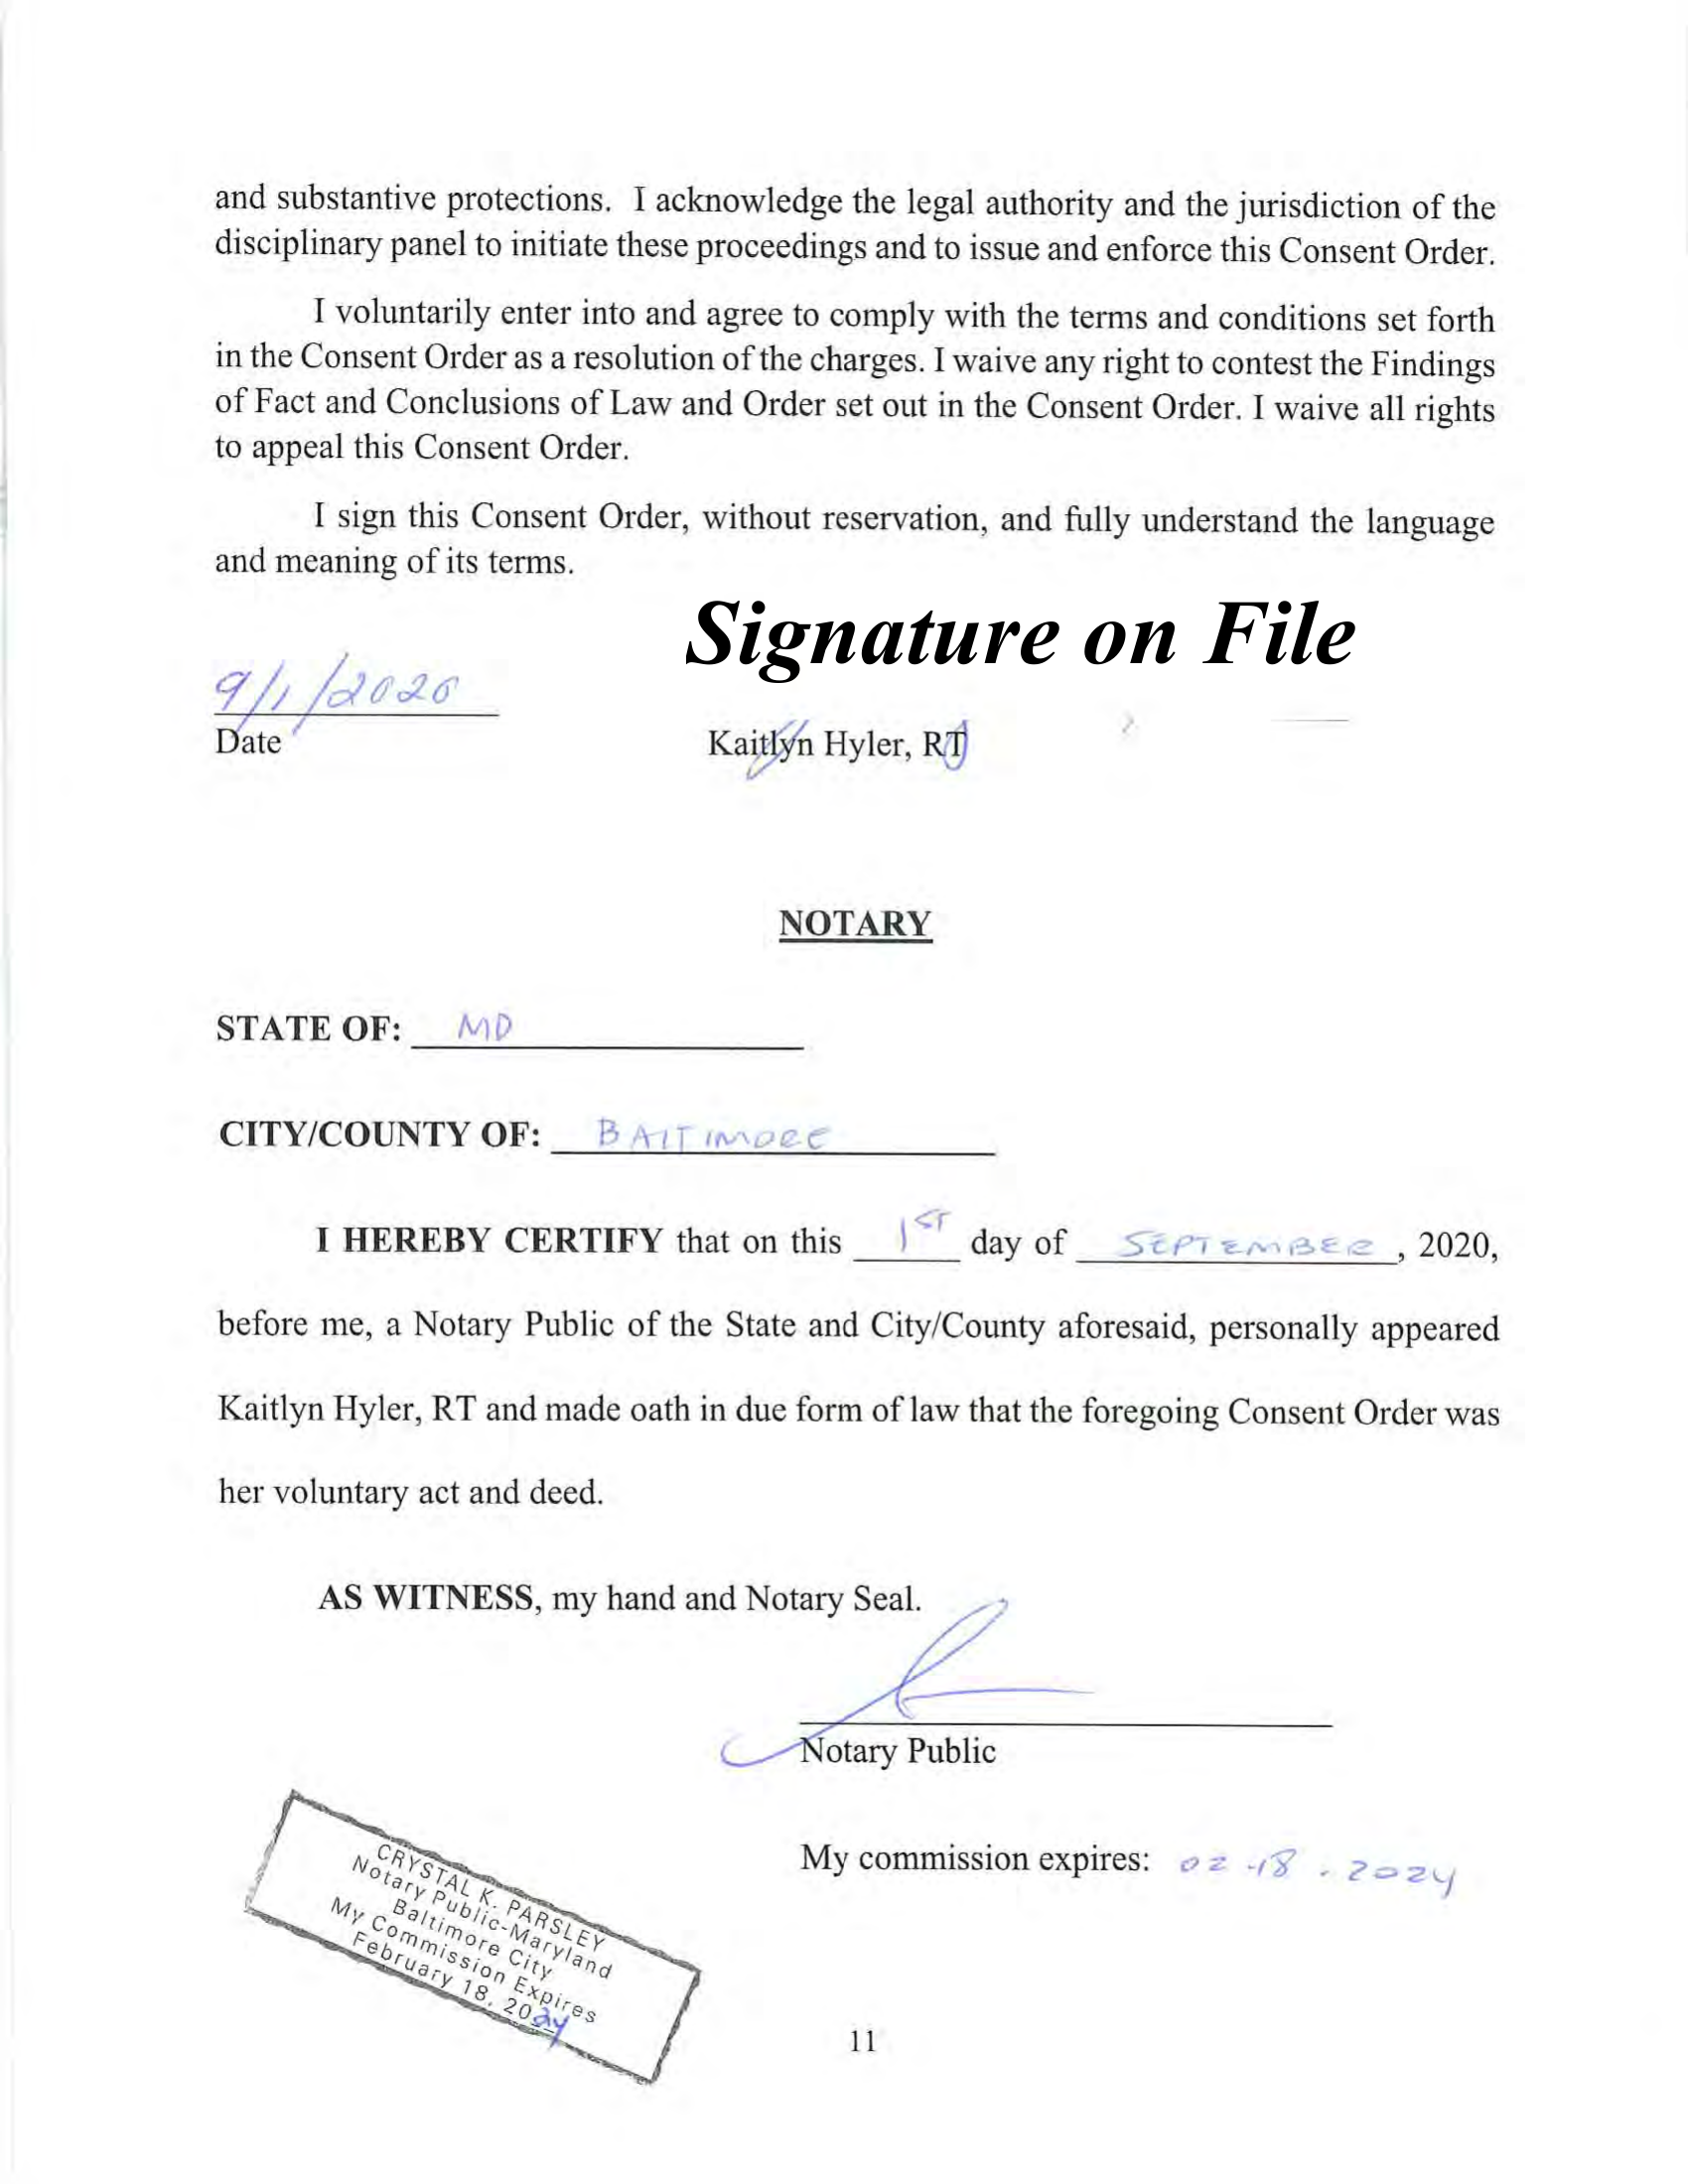 and substantive protections. I acknowledge the legal authority and the jurisdiction of the
disciplinary panel to initiate these proceedings and to issue and enforce this Consent Order.
I voluntarily enter into and agree to comply with the terms and conditions set forth
in the Consent Order as a resolution of the charges. I waive any right to contest the Findings
of Fact and Conclusions of Law and Order set out in the Consent Order. I waive all rights
to appeal this Consent Order.
I sign this Consent Order, without reservation, and fully understand the language
and meaning of its terms.
Signature on File
9/1/2020
Date
Kaitlyn Hyler, RT
NOTARY
STATE OF: MD
CITY/COUNTY OF: BALTIMORE
I HEREBY CERTIFY that on this 1ST day of SEPTEMBER, 2020,
before me, a Notary Public of the State and City/County aforesaid, personally appeared
Kaitlyn Hyler, RT and made oath in due form of law that the foregoing Consent Order was
her voluntary act and deed.
AS WITNESS, my hand and Notary Seal.
Notary Public
My commission expires: 02.18.2024
CRYSTAL K. PARSLEY
Notary Public-Maryland
Baltimore City
My Commission Expires
February 18, 2024
11